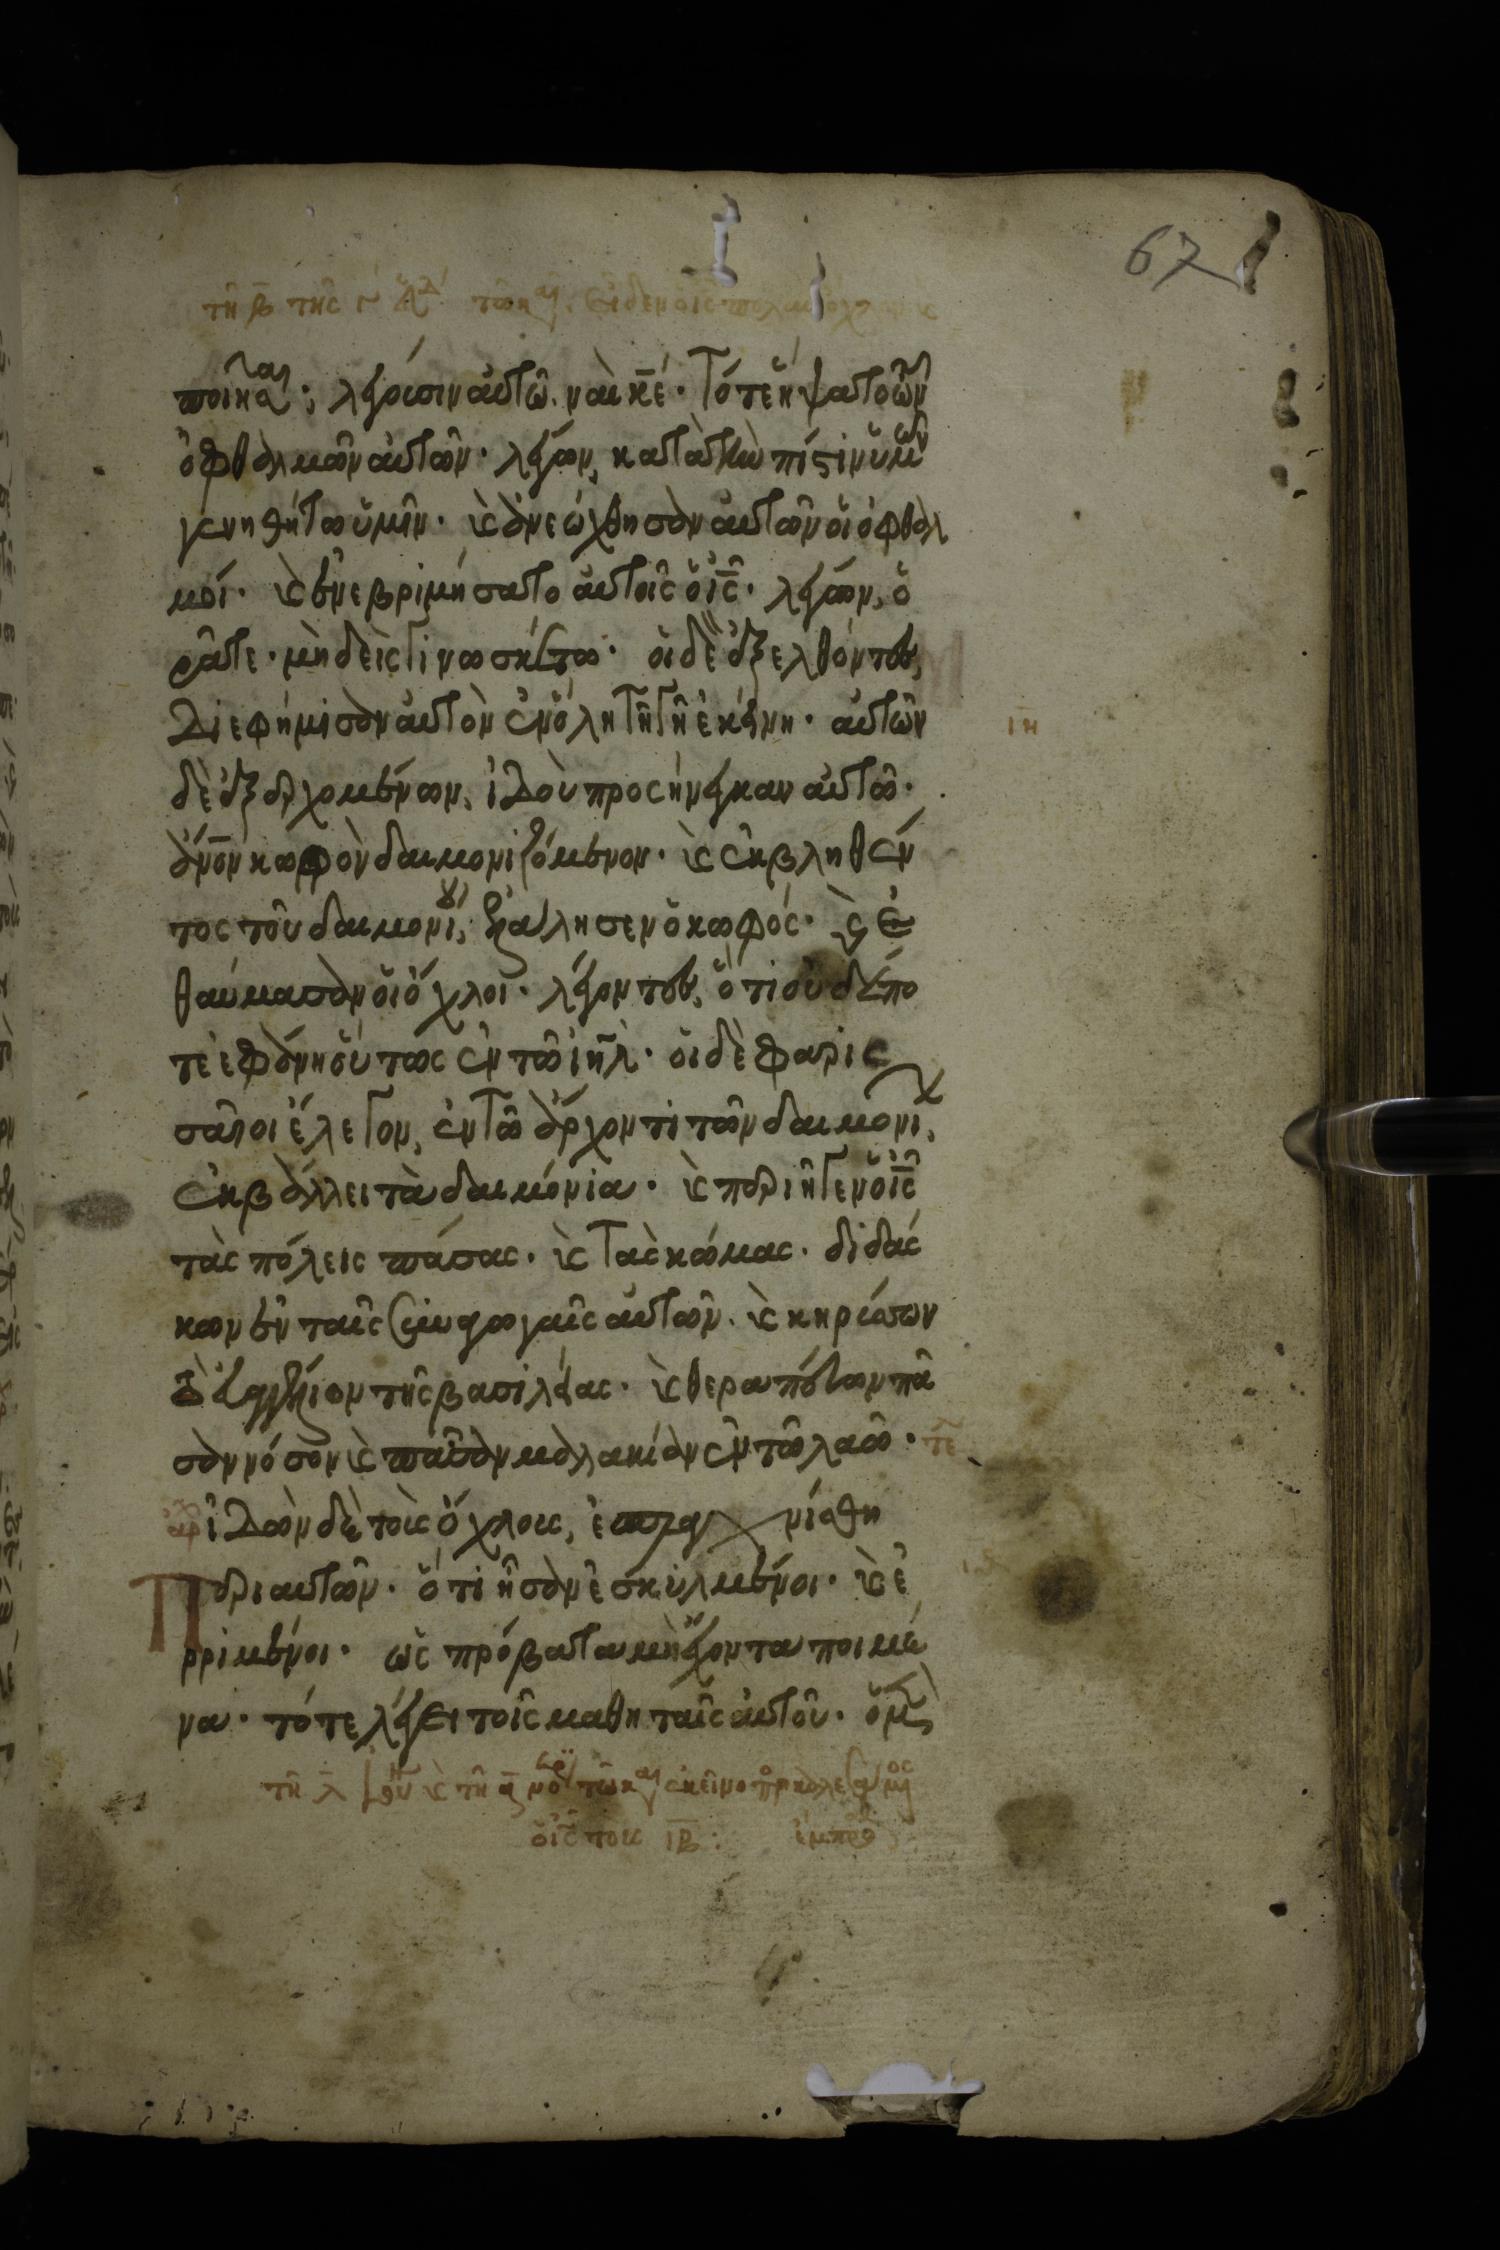 67
ποιῆσαι; λέγουσιν αὐτῶ. ναὶ κ̅ε. τότε ἥψατο τῶν
ὀφθαλμῶν αὐτῶν. λέγων, κατὰ τὴν πίστιν ὑμῶν
γενηθήτω ὑμῖν. κ(αὶ) ἀνεώχθησαν αὐτῶν οἱ ὀφθαλ
μοί. κ(αὶ) ἐνεβριμήσατο αὐτοῖς ὁ ι̅ς̅. λέγων, ὁ
ρᾶτε. μηδεὶς γινωσκέτω. οἱ δὲ ἐξελθόντες,
διεφήμισαν αὐτὸν ἐν ὅλη τῆ γῆ ἐκείνη. αὐτῶν
ιη
δὲ ἐξερχομένων, ἰδοὺ προσήνεγκαν αὐτῶ.
ἄν̅ο̅ν̅ κωφὸν δαιμονιζόμενον. κ(αὶ) ἐκβληθέν
τος τοῦ δαιμονίου, ἐλάλησεν ὁ κωφός. κ(αὶ) ἐ
θαύμασαν οἱ ὄχλοι. λέγοντες, ὅτι οὐδέπο
τε ἐφάνη οὕτως ἐν τῶ ι̅η̅λ̅. οἱ δὲ φαρισ
σαῖοι ἔλεγον, ἐν τῶ ἄρχοντι τῶν δαιμονίων,
ἐκβάλλει τὰ δαιμόνια. κ(αὶ) περιῆγεν ὁ ι̅ς̅
τὰς πόλεις πάσας. κ(αὶ) τὰς κώμας. διδάσ
κων ἐν ταῖς συναγωγαῖς αὐτῶν. κ(αὶ) κηρύσσων
τὸ εὐαγγέλιον τῆς βασιλείας. κ(αὶ) θεραπεύων πᾶ
σαν νόσον κ(αὶ) πᾶσαν μαλακίαν ἐν τῶ λαῶ. τε
ἰδὼν δὲ τοὺς ὄχλους, ἐσπλαγχνίσθη
περὶ αὐτῶν. ὅτι ἦσαν ἐσκυλμένοι. κ(αὶ) ἐ
ρριμένοι. ὡς πρόβατα μὴ ἔχοντα ποιμέ
να. τότε λέγει τοῖς μαθηταῖς αὐτοῦ. ὁ μ(ὲν)